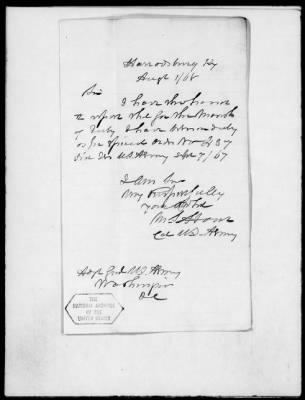 Harrodsburg Ky
Augt 1/68
Sir
I have the honor
to report that for the Month
of July I have been on duty
as per Special Order No 37
U.S. Army 7/67
I am Sir
Very Respectfully
Your
M
Col US Army
Adjt Genl US Army
Washington
DC
THE
NATIONAL ARCHIVES
OF THE
UNITED STATES